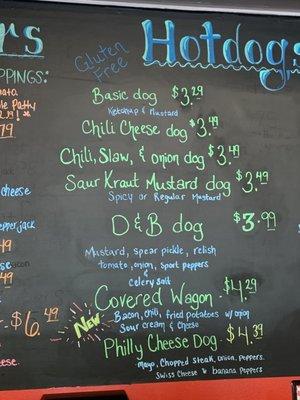 rs
Hotdogs
Gluten
Free
PPINGS:
Basic dog $3.29
Ketchup & Mustard
Chili Cheese dog $3.49
Chili, Slaw, & onion dog $3.49
Saur Kraut Mustard dog $3.49
Spicy or Regular Mustard
D&B dog $3.99
Mustard, spear pickle, relish
tomato, onion, sport peppers
&
celery salt
Covered Wagon $4.29
New
Bacon, chili, fried potatoes w/ onion
Sour cream & Cheese
Philly Cheese Dog $4.39
Mayo, Chopped steak, Onion, Peppers,
Swiss Cheese & banana Peppers
Patty
cheese
pepperjack
bacon
$6.49
cheese.